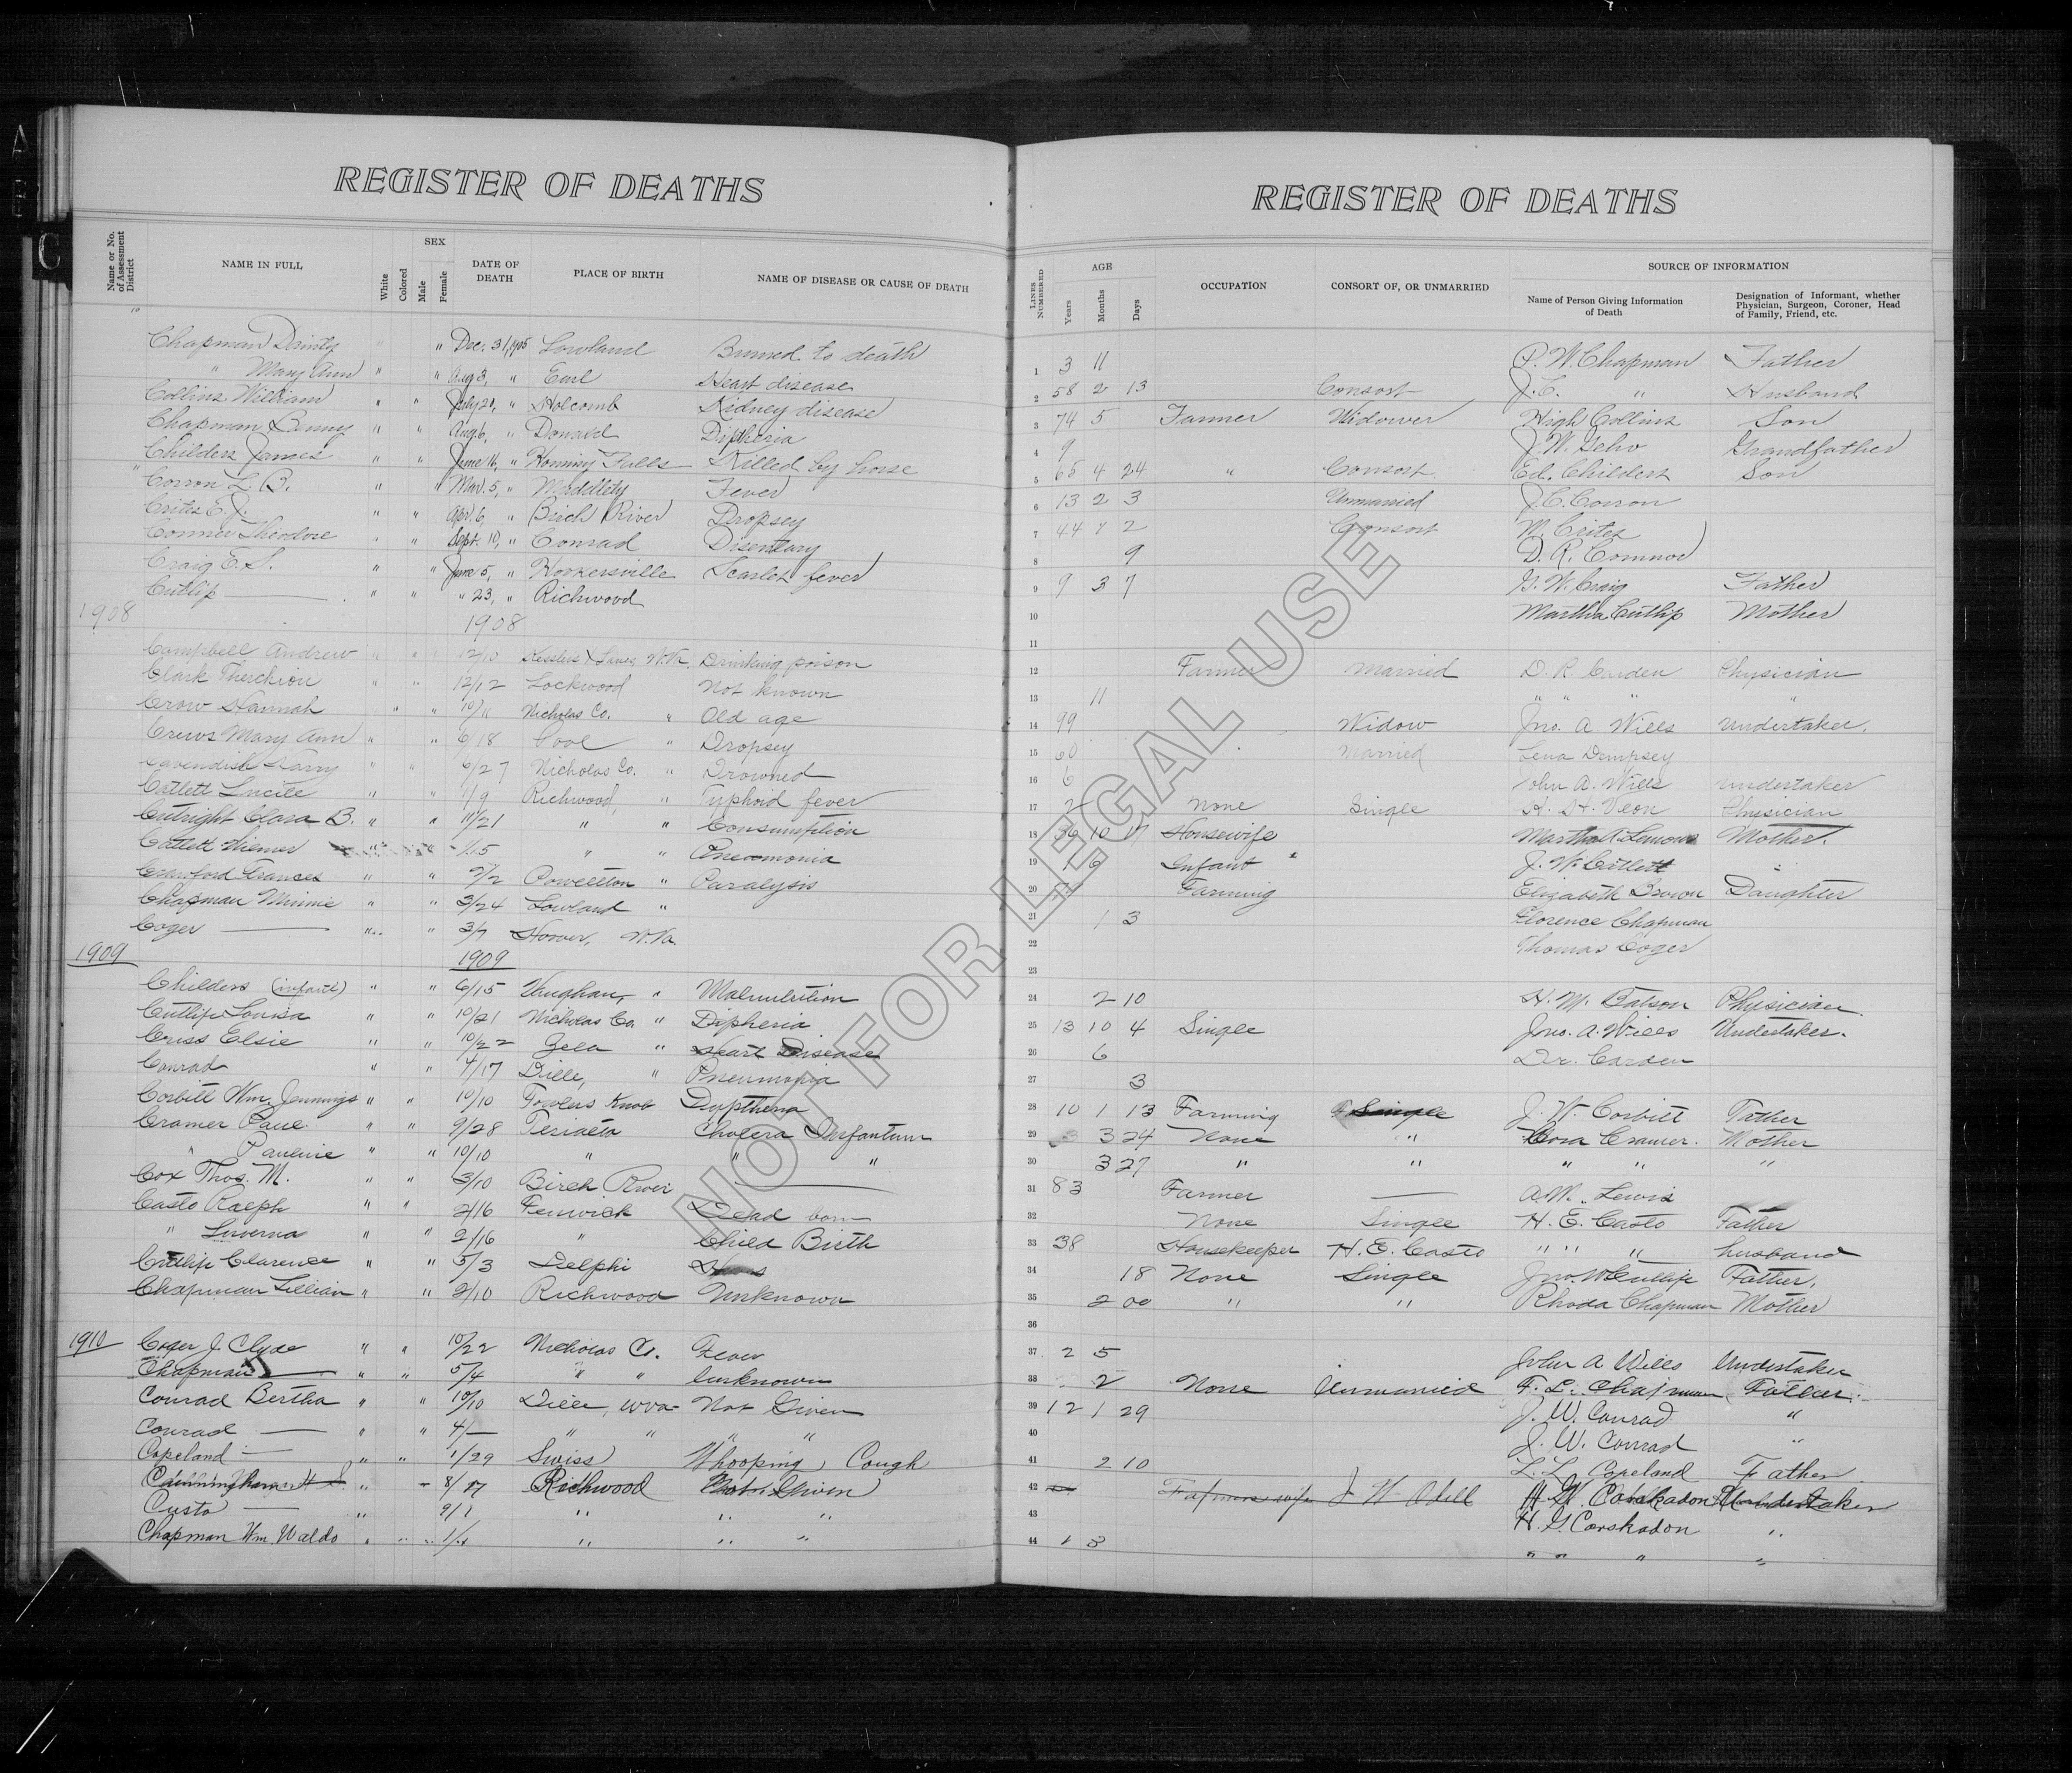 REGISTER OF DEATHS
Name or No. of Assessment District
NAME IN FULL
White
Colored
SEX
Male
Female
DATE OF DEATH
PLACE OF BIRTH
NAME OF DISEASE OR CAUSE OF DEATH
Chapman Dainty " " Dec. 31, 1905 Lowland Burned to death
" Mary Ann " " Aug 3, " Earl Heart disease
Collins William " " July 20, " Holcomb Kidney disease
Chapman Benny " " Aug 6, " Donald Diptheria
Childers James " " June 16, " Falls Killed by horse
L. B. " " Mar. 5, " Fever
Crites E. J. " " Apr. 6, " Birch River Dropsey
Conner Theodore " " Sept. 10, " Conrad Disentary
Craig E. S. " " June 5, " Hookersville Scarlet fever
Cutlip " " " 23, " Richwood
1908 1908
Campbell Andrew " " 12/10 Lanes W.Va. Drinking poison
Clark " " 12/12 Lockwood Not known
Crow Hannah " " 10/11 Nicholas Co. " Old age
Crews Mary Ann " " 6/18 " Dropsey
Cavendish Harry " " 6/27 Nicholas Co. " Drowned
Catlett Lucile " " 1/9 Richwood, " Typhoid fever
Cutright Clara B. " " 11/21 " " Consumption
Catlett " " 1/15 " " Pneomonia
Crawford Frances " " 2/2 Powellton " Paralysis
Chapman Minnie " " 3/24 Lowland "
Coger " " 3/7 Hoover, W.Va.
1909 1909
Childers (infant) " " 6/15 Vaughan, " Malnutrition
Cutlip Louisa " " 10/21 Nicholas Co. " Diptheria
Criss Elsie " " 10/22 Zela " Heart Disease
Conrad " " 4/17 Dille, " Pneumonia
Corbitt Wm. Jennings " " 10/10 Fowlers Knob Dyptheria
Cramer Paul " " 9/28 Cholera Infantum
" Pauline " " 10/10 " " "
Cox Thos. M. " " 3/10 Birch River
Casto Ralph " " 2/16 Fenwick Dead born
" Luverna " " 2/16 " Child Birth
Cutlip Clarence " " 5/3 Delphi
Chapman Lillian " " 2/10 Richwood Unknown
1910 Coger J. Clyde " " 10/22 Nicholas Co. Fever
Chapman " " 5/4 " " Unknown
Conrad Bertha " " 10/10 Dille, W Va- Not Given
Conrad " " 4/ " " " "
Copeland " " 1/29 Swiss Whooping Cough
Cunningham " 8/17 Richwood Not Given
Custo " 9/1 " " "
Chapman Wm. Waldo " " " " "
REGISTER OF DEATHS
LINES NUMBERED
AGE
Years
Months
Days
OCCUPATION
CONSORT OF, OR UNMARRIED
SOURCE OF INFORMATION
Name of Person Giving Information of Death
Designation of Informant, whether Physician, Surgeon, Coroner, Head of Family, Friend, etc.
1 3 11 P. W. Chapman Father
2 58 2 13 Consort J. C. " Husband
3 74 5 Farmer Widower High Collins Son
4 9 J. W. Grandfather
5 65 4 24 " Consort Ed. Childers Son
6 13 2 3 Unmarried J. C.
7 44 2 Consort M. Crites
8 9 D. R. Connor
9 9 3 7 G. W. Craig Father
10 Martha Cutlip Mother
11
12 Farmer Married D. R. Carden Physician
13 11 " " " "
14 99 Widow Jno. A Wills Undertaker.
15 60 Married Lena Dempsey
16 6 John A. Wills Undertaker
17 2 None Single Physician
18 36 10 17 Housewife Martha A. Lemons Mother.
19 6 Infant J. W. Catlett "
20 Farming Elizabeth Brown Daughter
21 1 3 Florence Chapman
22 Thomas Coger
23
24 2 10 H. M. Physician
25 13 10 4 Single Jno. A. Wills Undertaker.
26 6 Dr. Carden
27 3
28 10 1 13 Farming Single J. W. Corbitt Father
29 3 24 None " Cora Cramer. Mother
30 3 27 " " " " "
31 83 Farmer A. W. Lewis
32 None Single H. E. Casto Father
33 38 Housekeeper H. E. Casto " " " husband
34 18 None Single Jno. W Cutlip Father,
35 2 00 " " Rhoda Chapman Mother
36
37 2 5 John A Wills Undertaker
38 2 None Unmarried F. L. Chapman Father
39 12 1 29 J. W. Conrad "
40 J. W. Conrad "
41 2 10 L. L. Copeland Father
42 Farmers wife J W Odell H. G. Corskadon Undertaker
43 H. G. Corskadon "
44 1 3 " " " "
NOT FOR LEGAL USE
C